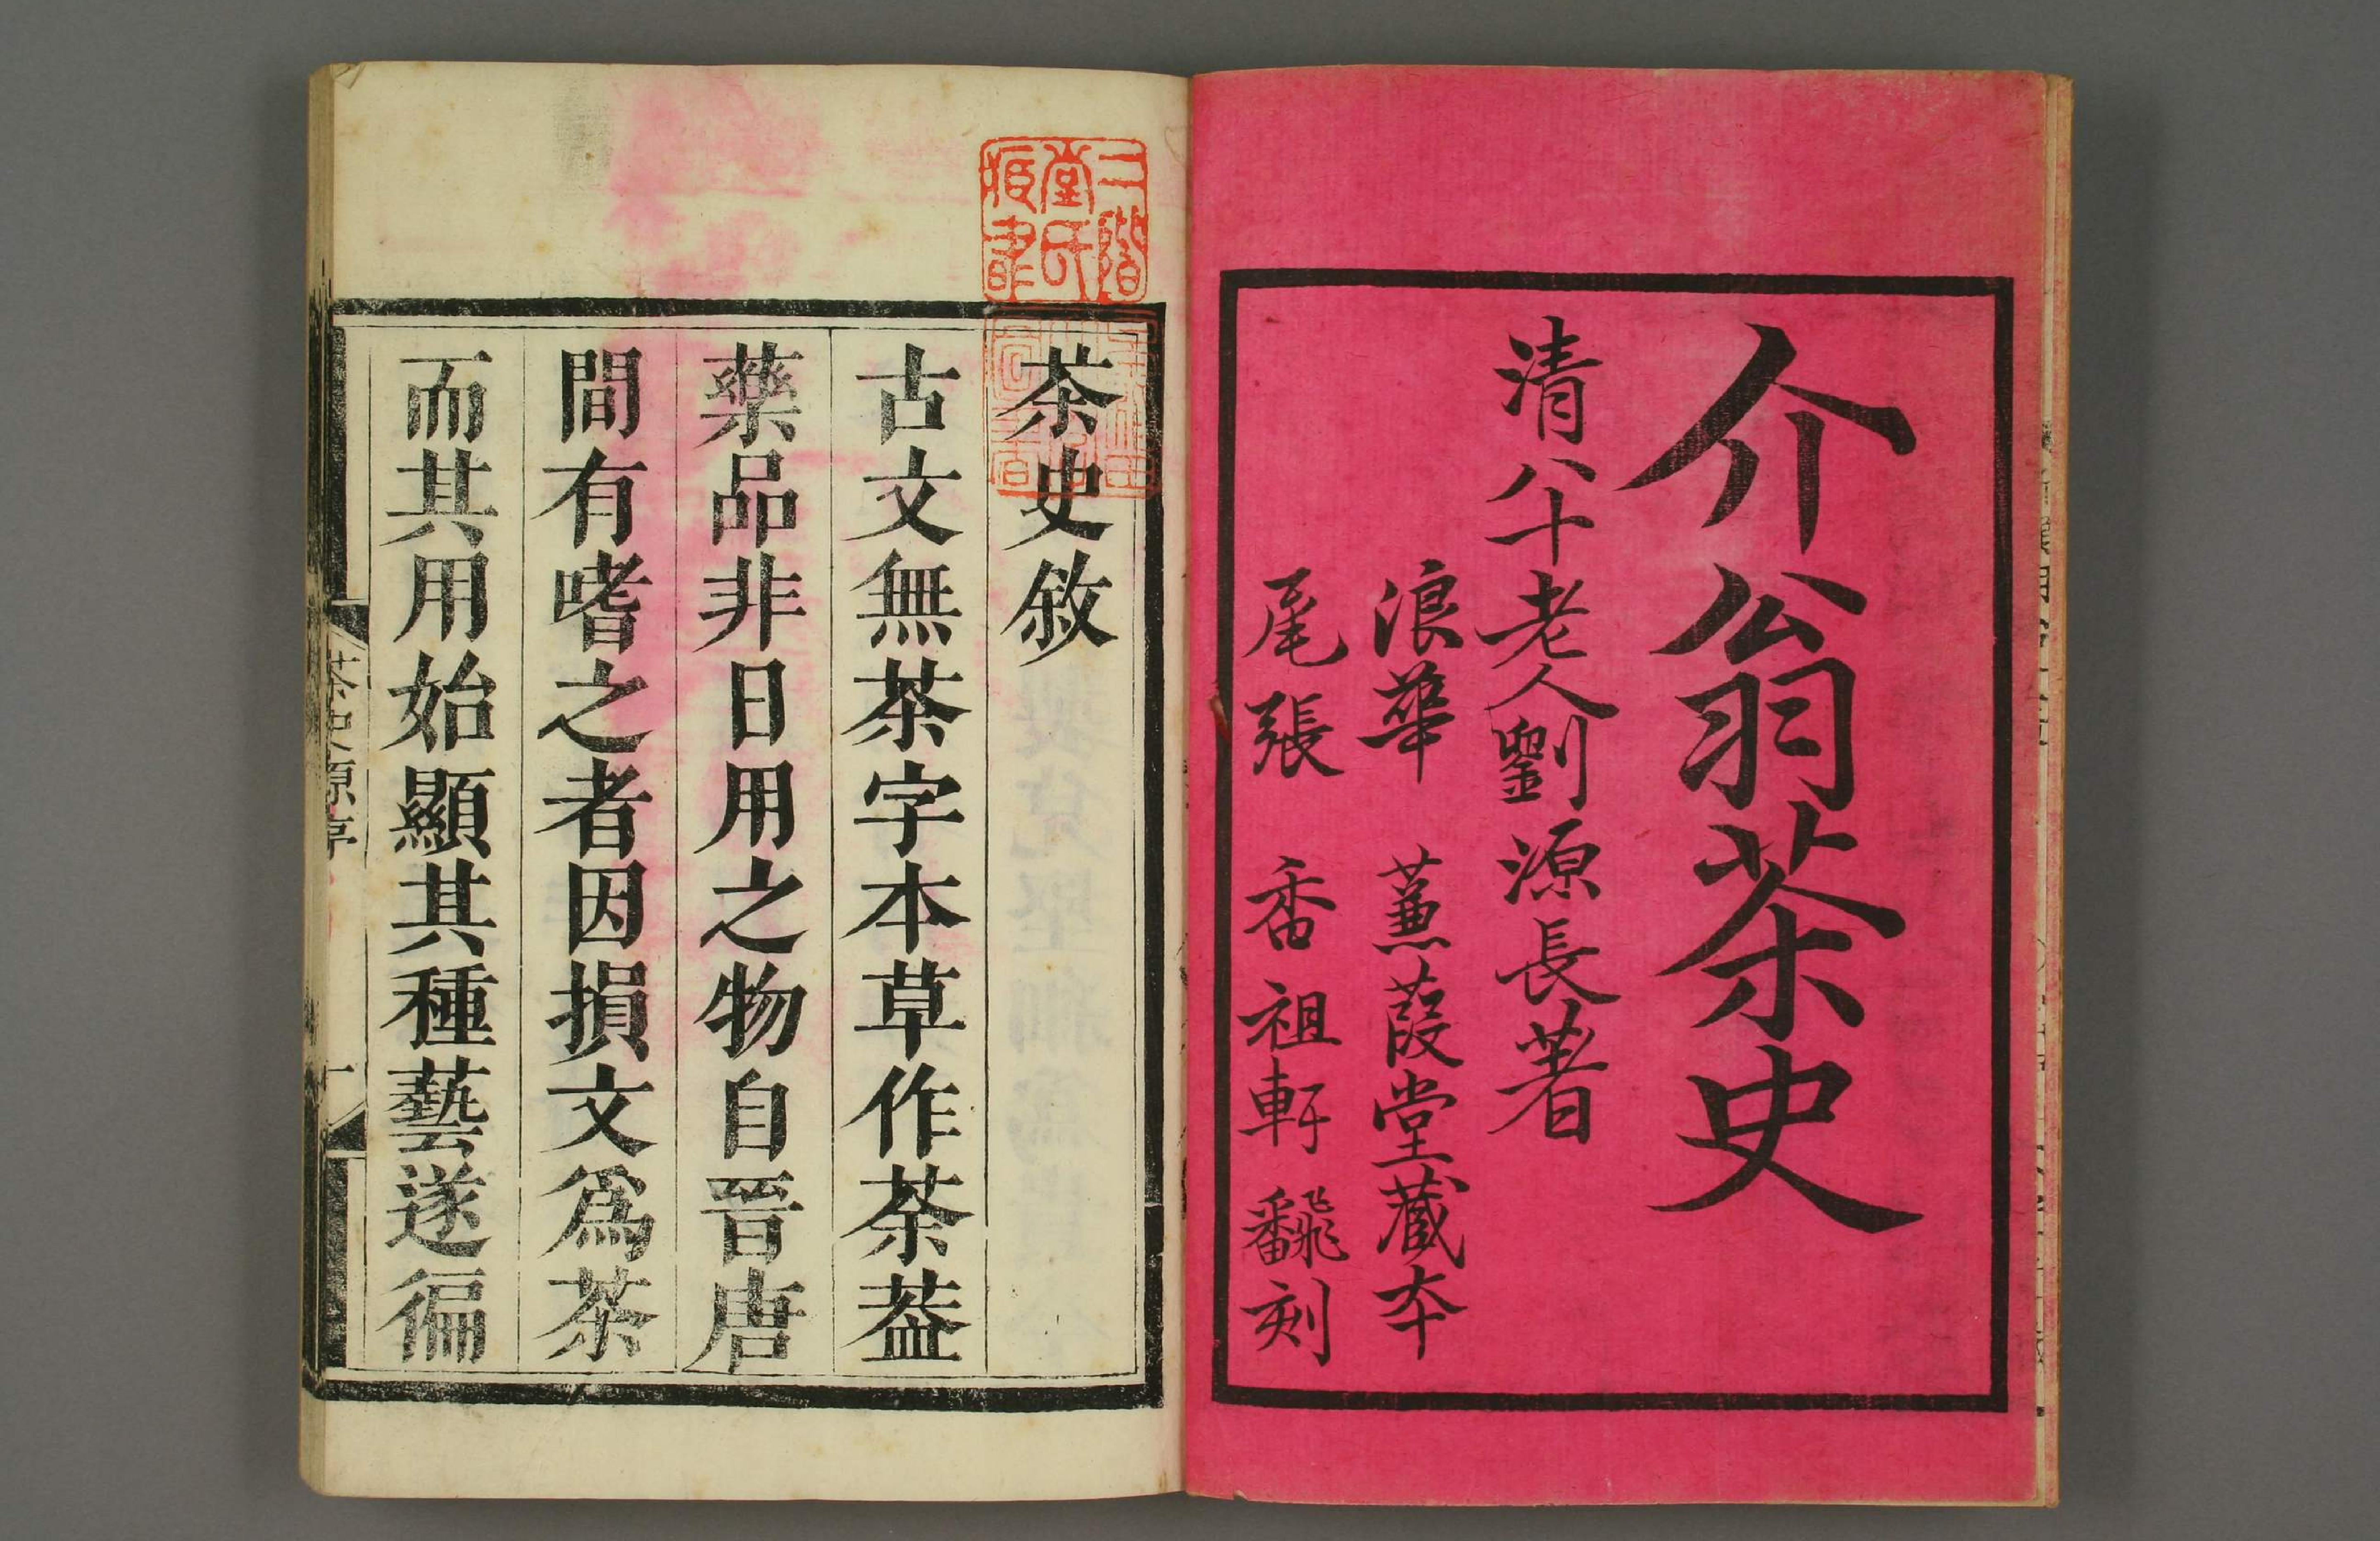 介翁茶史
清八十老人劉源長著
浪華 蒹葭堂藏夲
尾張 香祖軒飜刻
二階
堂氏
臧書
茶史敘
古文無茶字本草作荼葢
藥品非日用之物自晉唐
間有嗜之者因損文爲茶
而其用始顯其種藝遂徧
茶史原序 一